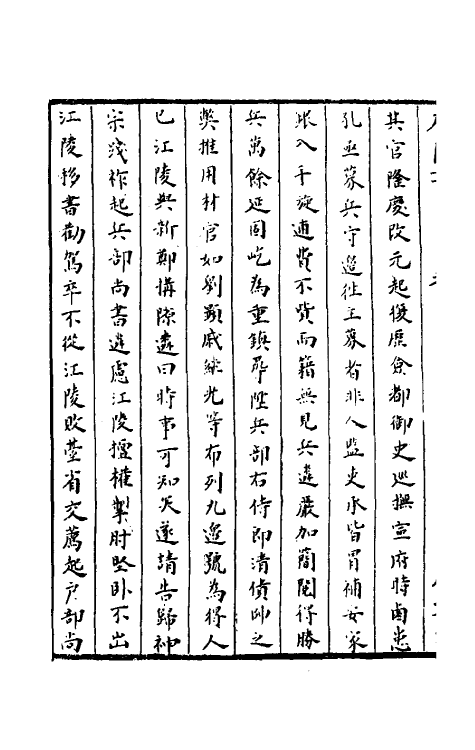 其官隆慶改元起復歷僉都御史巡撫宣府時鹵患
孔亟募兵守邊往主募者非人監吏承皆冒補安家
賬入手旋逋費不貲而籍無見兵遴嚴加簡閱得勝
兵萬餘延固屹為重鎮尋陞兵部右侍郎清債帥之
弊推用材官如劉顯戚繼光等布列九邊號為得人
已江陵與新鄭搆隙遴曰時事可知矣遂請告歸神
宗踐祚起兵部尚書遴慮江陵擅權掣肘堅臥不出
江陵移書勸駕卒不從江陵敗臺省交薦起戶部尚